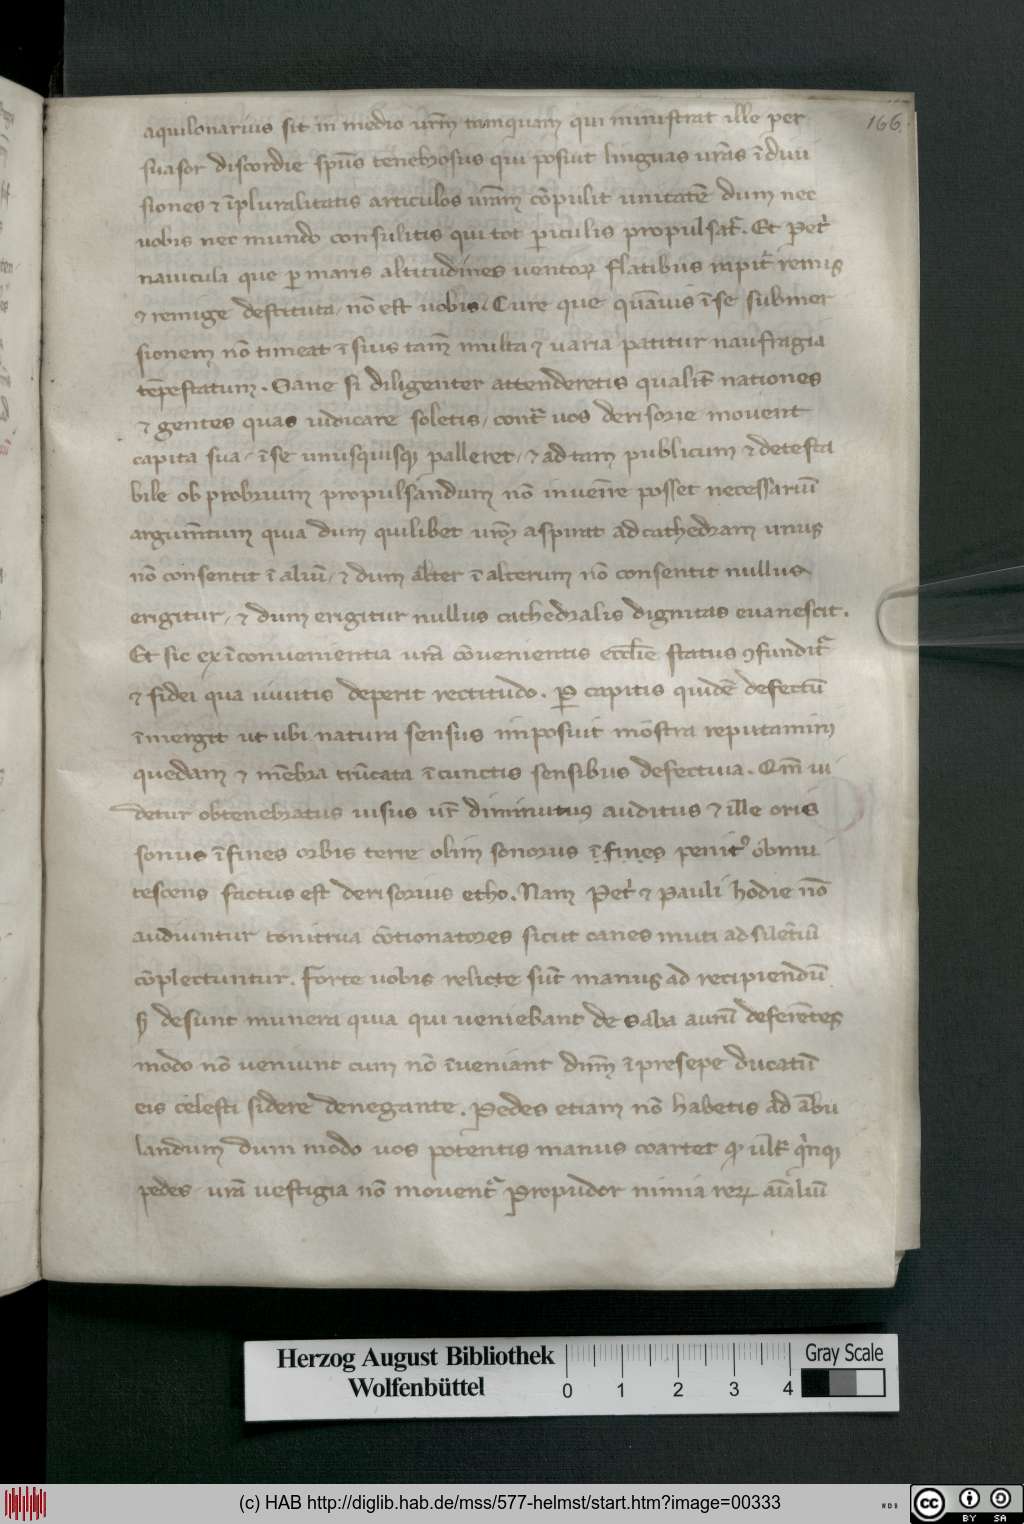 166.
aquilonarius sit in medio ur̄m tamquam qui ministrat ille per
suasor discordie sp̄us tenebrosus qui posuit linguas ur̄as ī diui
siones ⁊ īpluralitatis articulos ur̄am cōpulit unitatē dum nec
uobis nec mundo consulitis qui tot ꝑiculis propulsat̄. Et Pet̄
nauicula que ꝑ maris altitudines uentoꝝ flatibus rapit̄ remis
⁊ remige destituta / nō est uobis. Cure que quāuis īse submer
sionem nō timeat ī sius tam̄ multa ⁊ uaria patitur naufragia
tēpestatum. Sane si diligenter attenderetis qualit̄ nationes
⁊ gentes quas iudicare soletis / cont̄ uos derisorie mouent
capita sua / īse unusquisqꝫ palleret / ⁊ ad tam publicum ⁊ detesta
bile obprobrium propulsandum nō inuenire posset necessariū
argumētum quia dum quilibet ur̄m aspirat ad cathedram unus
nō consentit ī aliū / ⁊ dum alter ī alterum nō consentit nullus
erigitur / ⁊ dum erigitur nullus cathedralis dignitas euanescit.
Et sic ex īconuenientia ur̄a cōuenientis eccl̄ie status ꝯfundit̄
⁊ fidei qua uiuitis deperit rectitudo. Ꝑ capitis quidē defectū
īmergit ut ubi natura sensus imposuit mōstra reputamini
quedam ⁊ mēbra trūcata ī cunctis sensibus defectiua. Qm̄ ui
detur obtenebratus uisus ur̄ diminutus auditus ⁊ ille oris
sonus ī fines orbis terre olim sonorus ī fines penitꝰ obmu
tescens factus est derisorius echo. Nam Pet̄ ⁊ Pauli hodie nō
audiuntur tonitrua cōtionatores sicut canes muti ad silētiū
cōplectuntur. Forte uobis relicte sūt manus ad recipiendū
ꝫ desunt munera quia qui ueniebant de Saba aurū deferētes
modo nō ueniunt cum nō īueniant dn̄m ī presepe ducatū
eis celesti sidere denegante. Pedes etiam nō habetis ad ābu
landum dum modo uos potentis manus coartet qꝫ ul̄t qͥnqꝫ
pedes ur̄a uestigia nō mouent̄ Propudor nimia reꝝ aīaliū
Herzog August Bibliothek
Wolfenbüttel
0 1 2 3 4
Gray Scale
(c) HAB http://diglib.hab.de/mss/577-helmst/start.htm?image=00333
WDB
cc BY SA